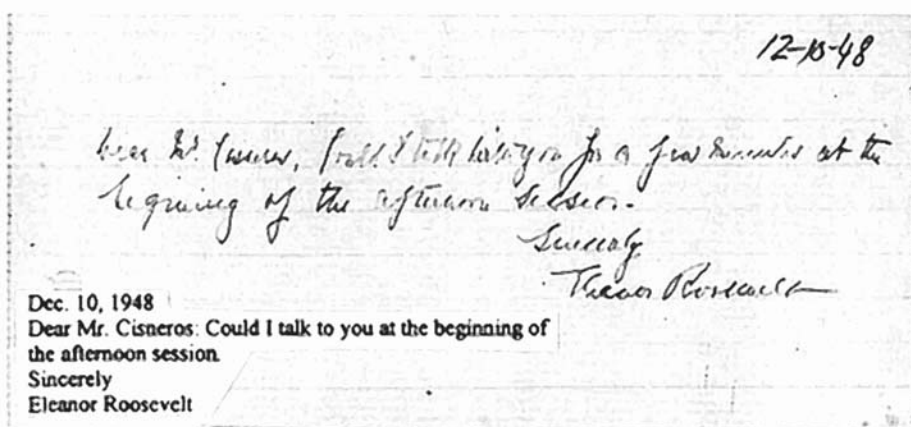 12-10-48
Dear Mr. Cisneros, Could I talk with you for a few minutes at the
begining of the afternoon session.
Sincerely
Eleanor Roosevelt
Dec. 10, 1948
Dear Mr. Cisneros: Could I talk to you at the beginning of
the afternoon session.
Sincerely
Eleanor Roosevelt